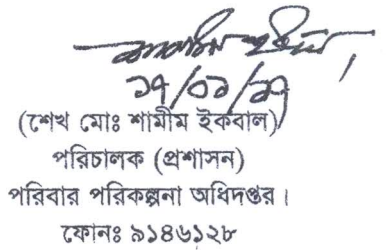 ১৭/০১/১৭
(শেখ মোঃ শামীম ইকবাল)
পরিচালক (প্রশাসন)
পরিবার পরিকল্পনা অধিদপ্তর।
ফোনঃ ৯১৪৬১২৮